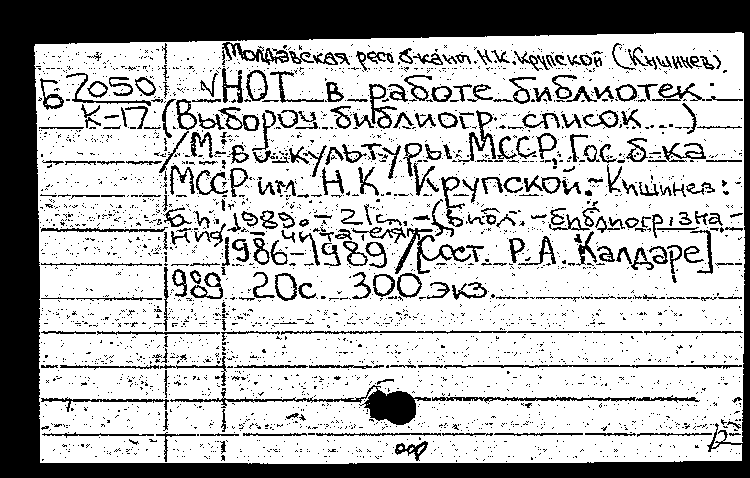 Молдавская респ б-ка им. Н.К. Крупской (Кишинев).
Б 7050 √НОТ в работе библиотек:
К-17 (Выбороч. библиогр. список...)
/М-во культуры МССР, Гос. б-ка
МССР им. Н.К. Крупской.- Кишинев:
Б.и. 1989.- 21 см.-(Библ.-библиогр. зна-
ния - читателям)
1986-1989 /[Сост. Р.А. Калдаре]
1989 20с. 300 экз.